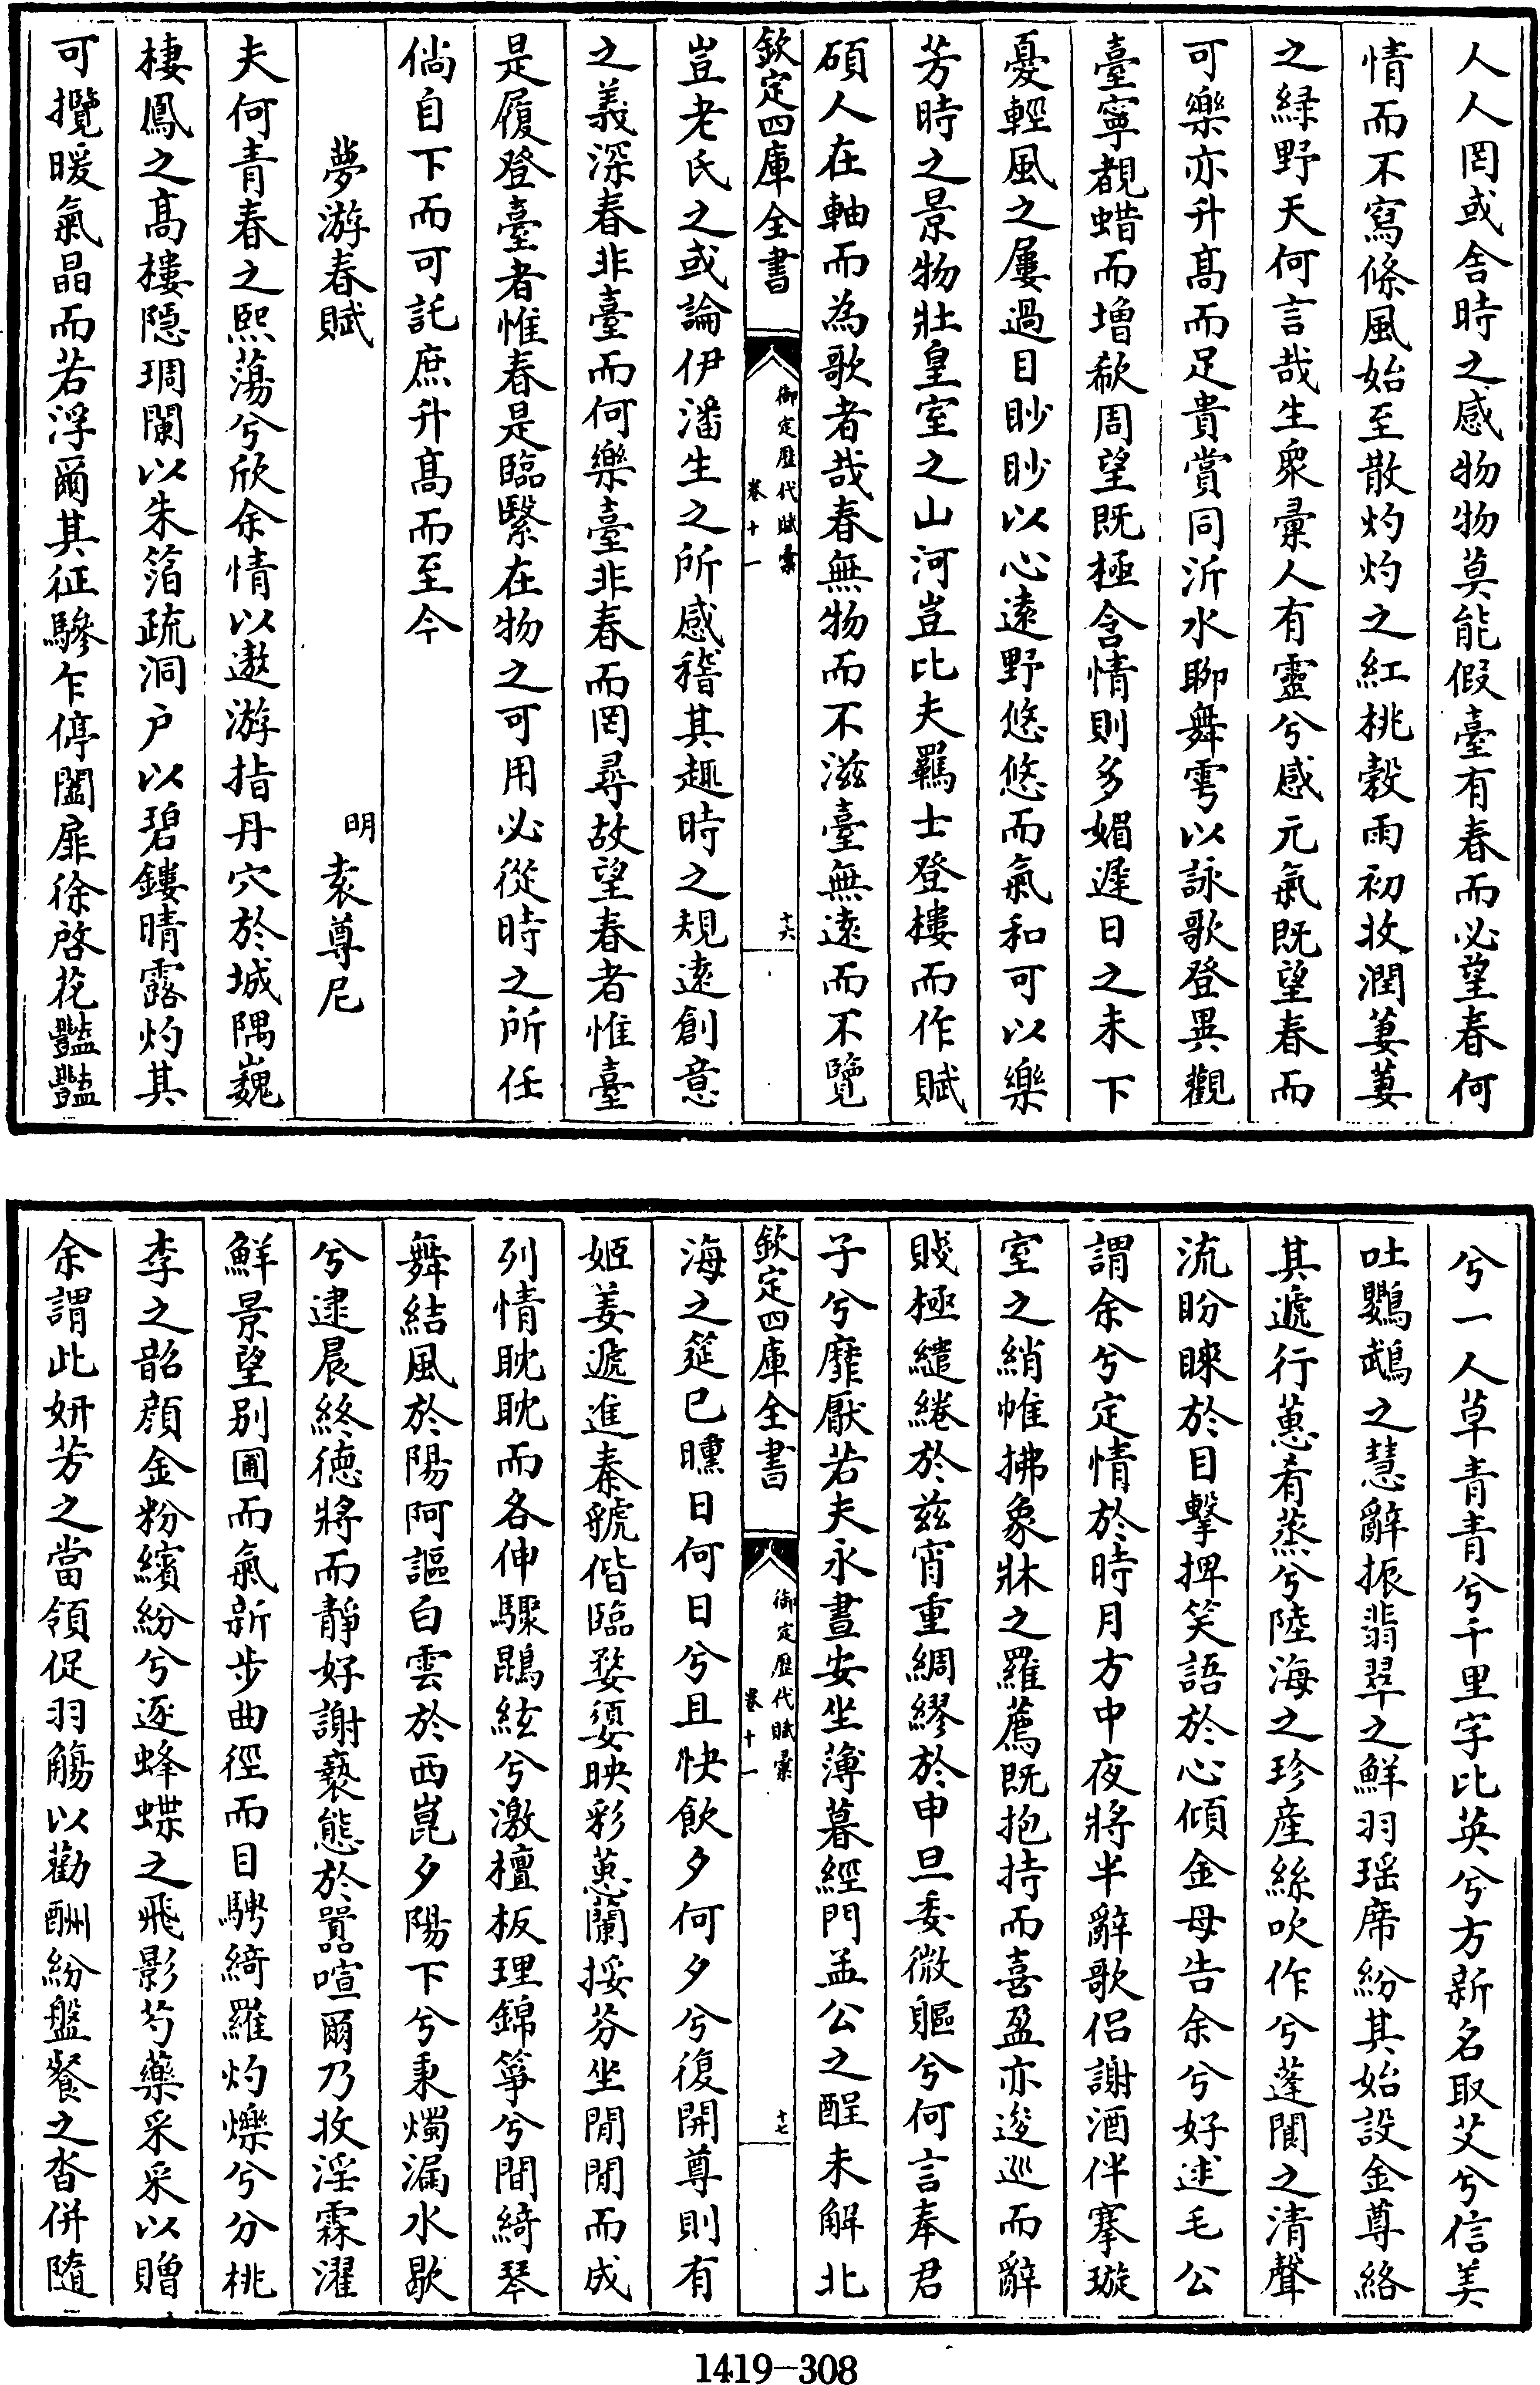 人人罔或舍時之感物物莫能假臺有春而必望春何
情而不寫條風始至散灼灼之紅桃穀雨初收潤萋萋
之緑野天何言哉生衆彚人有靈兮感元氣既望春而
可樂亦升髙而足貴賞同沂水聊舞雩以詠歌登異觀
臺寧覩蜡而增欷周望既極含情則多媚遲日之未下
憂輕風之屢過目眇眇以心逺野悠悠而氣和可以樂
芳時之景物壯皇室之山河豈比夫羈士登樓而作賦
碩人在軸而為歌者哉春無物而不滋臺無逺而不覽
欽定四庫全書
御定歴代賦彙
卷十一
十六
豈老氏之或論伊潘生之所感稽其趣時之規逺創意
之義深春非臺而何樂臺非春而罔尋故望春者惟臺
是履登臺者惟春是臨繄在物之可用必從時之所任
倘自下而可託庶升髙而至今
夢游春賦
明 袁尊尼
夫何青春之熙蕩兮欣余情以遨游指丹穴於城隅巍
棲鳳之髙樓隠琱闌以朱箔疏洞户以碧鏤晴露灼其
可攬暖氣晶而若浮爾其征驂乍停闔扉徐啓花豔豔
兮一人草青青兮千里字比英兮方新名取艾兮信美
吐鸚鵡之慧辭振翡翠之鮮羽瑶席紛其始設金尊絡
其遞行蕙肴蒸兮陸海之珍產絲吹作兮蓬閬之清聲
流盼睞於目擊捭笑語於心傾金母告余兮好逑毛公
謂余兮定情於時月方中夜將半辭歌侣謝酒伴搴璇
室之綃帷拂象牀之羅薦既抱持而喜盈亦逡巡而辭
賤極繾綣於兹宵重綢繆於申旦委微軀兮何言奉君
子兮靡厭若夫永晝安坐薄暮經門孟公之酲未解北
欽定四庫全書
御定歴代賦彙
卷十一
十七
海之筵已曛日何日兮且快飲夕何夕兮復開尊則有
姬姜遞進秦虢偕臨婺媭映彩蕙蘭挼芬坐閒閒而成
列情眈眈而各伸驟鵾絃兮激檀板理錦箏兮間綺琴
舞結風於陽阿謳白雲於西崑夕陽下兮秉燭漏水歇
兮逮晨終德將而靜好謝褻態於囂喧爾乃收淫霖濯
鮮景望別圃而氣新步曲徑而目騁綺羅灼爍兮分桃
李之韶顔金粉繽紛兮逐蜂蝶之飛影芍藥采采以贈
余謂此妍芳之當領促羽觴以勸酬紛盤餐之沓併隨
1419-308